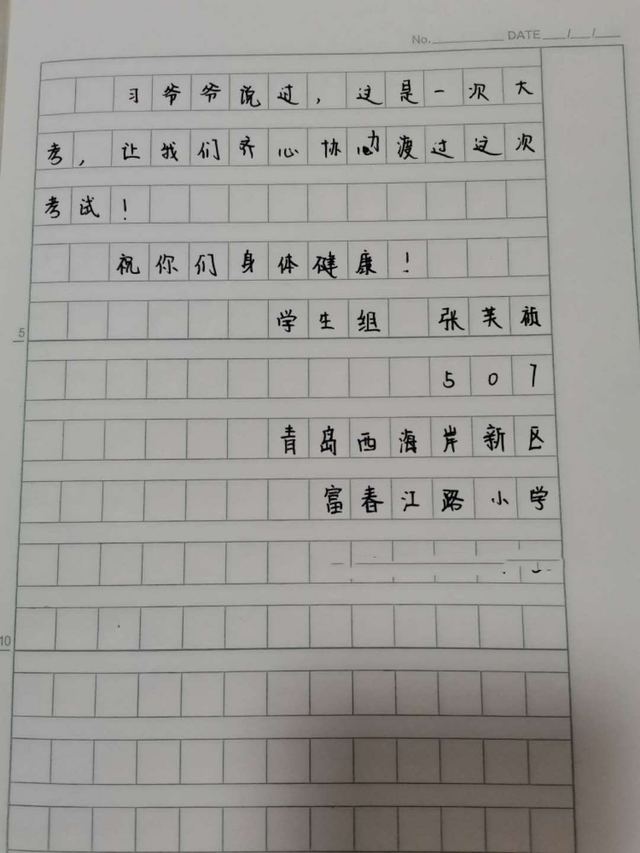 No. DATE / /
习爷爷说过，这是一次大
考，让我们齐心协力渡过这次
考试！
祝你们身体健康！
5
学生组 张芙祯
507
青岛西海岸新区
富春江路小学
10